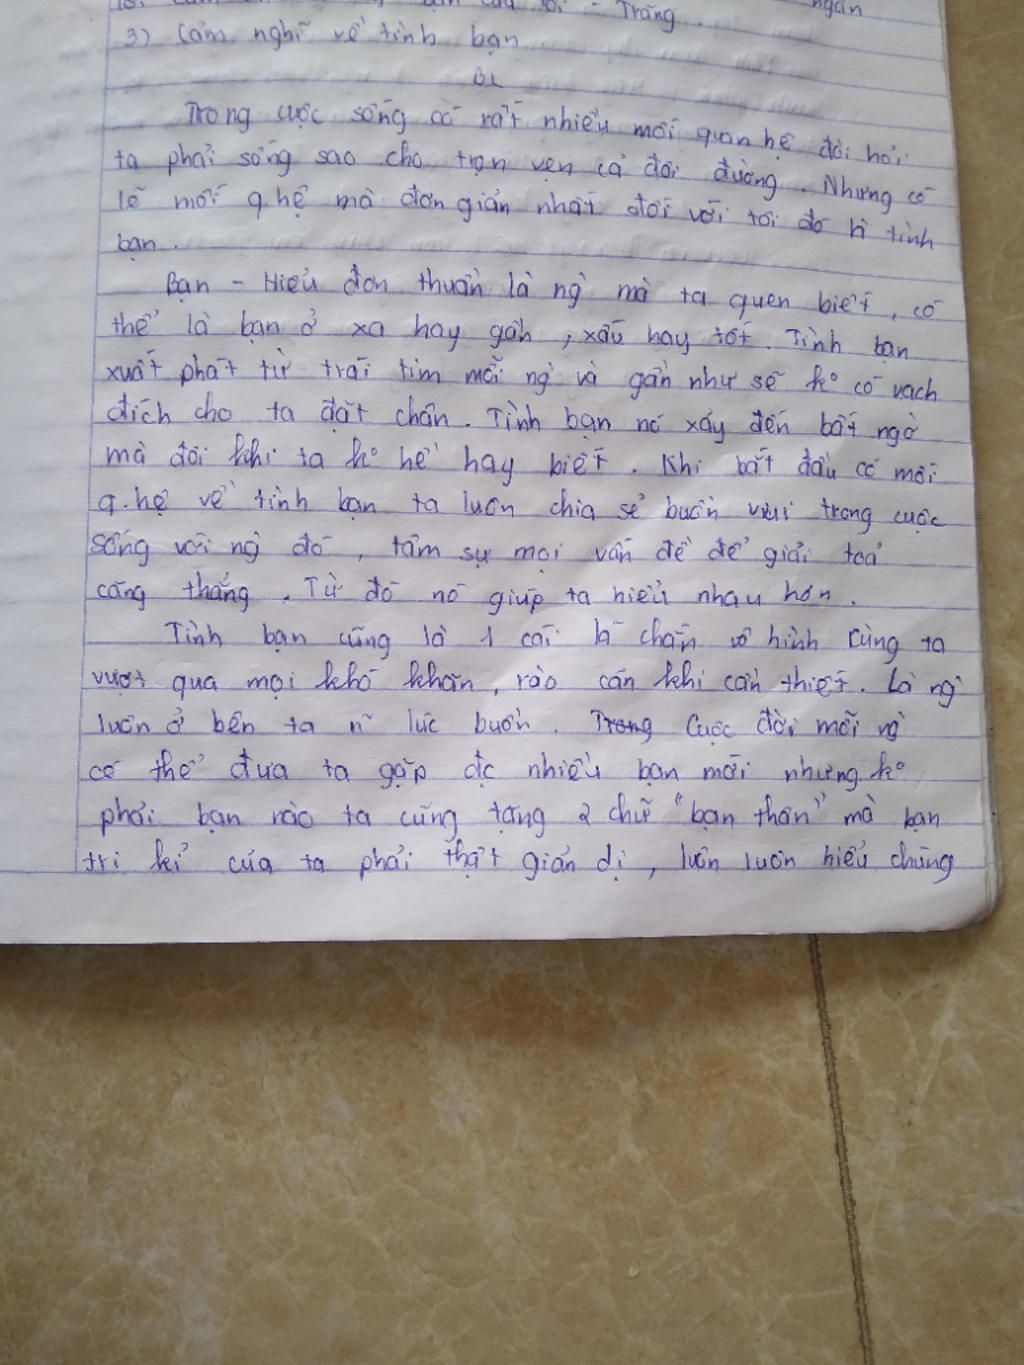 Trăng. ngắn
3) Cảm nghĩ về tình bạn.
BL
Trong cuộc sống có rất nhiều mối quan hệ đòi hỏi
ta phải sống sao cho trọn vẹn cả đôi đường. Nhưng có
lẽ mối q.hệ mà đơn giản nhất đối với tôi đó là tình
bạn.
Bạn - Hiểu đơn thuần là ng̀ mà ta quen biết, có
thể là bạn ở xa hay gần, xấu hay tốt. Tình bạn
xuất phát từ trái tim mỗi ng̀ và gần như sẽ ko có vạch
đích cho ta đặt chân. Tình bạn nó xảy đến bất ngờ
mà đôi khi ta ko hề hay biết. Khi bắt đầu có mối
q.hệ về tình bạn ta luôn chia sẻ buồn vui trong cuộc
sống với ng̀ đó, tâm sự mọi vấn đề để giải toả
căng thẳng. Từ đó nó giúp ta hiểu nhau hơn.
Tình bạn cũng là 1 cái lá chắn vô hình cùng ta
vượt qua mọi khó khăn, rào cản khi cần thiết. Là ng̀
luôn ở bên ta n~ lúc buồn. Trong Cuộc đời mỗi ng̀
có thể đưa ta gặp đc nhiều bạn mới nhưng ko
phải bạn nào ta cũng tặng 2 chữ "bạn thân" mà bạn
tri kỉ của ta phải thật giản dị, luôn luôn hiểu chúng